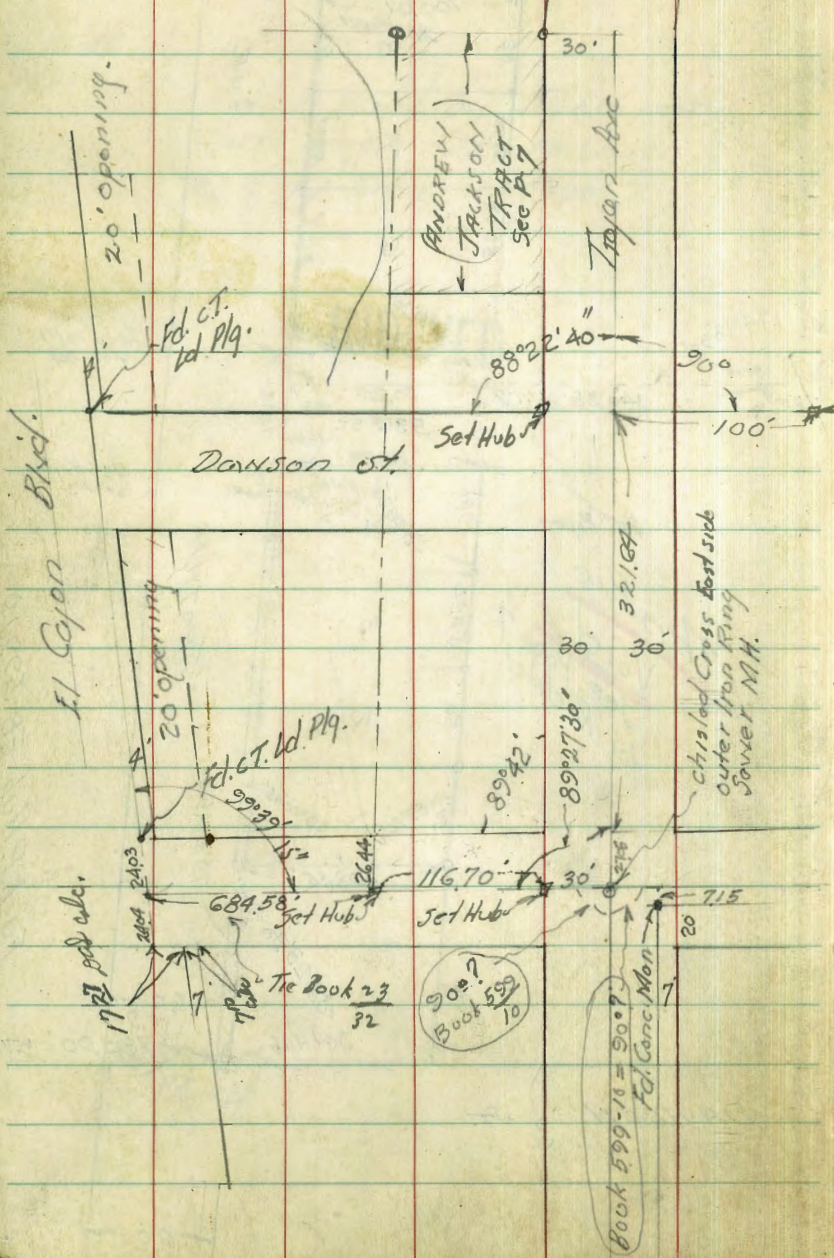 30'
20' opening.
ANDREW
JACKSON
TRACT
See P. 7
Trojan Ave
Fd. C.T.
Ld Plg.
4'
88°22'40"
90°
100'
Set Hub
El Cajon Blvd.
Dawson St.
321.64
20' opening
30'
30'
chisled Cross East side
outer Iron Ring
Sewer M.H.
4'
Fd. C.T. Ld. Plg.
99°39'15"
89°42'
89°27'30"
24.03
26.44
116.70'
30'
684.58'
Set Hub
Set Hub
7.15
20'
Tie Book 23
32
7'
90°?
Book 599
10
Fd. Conc. Mon
7'
Book 599-10 = 90°?